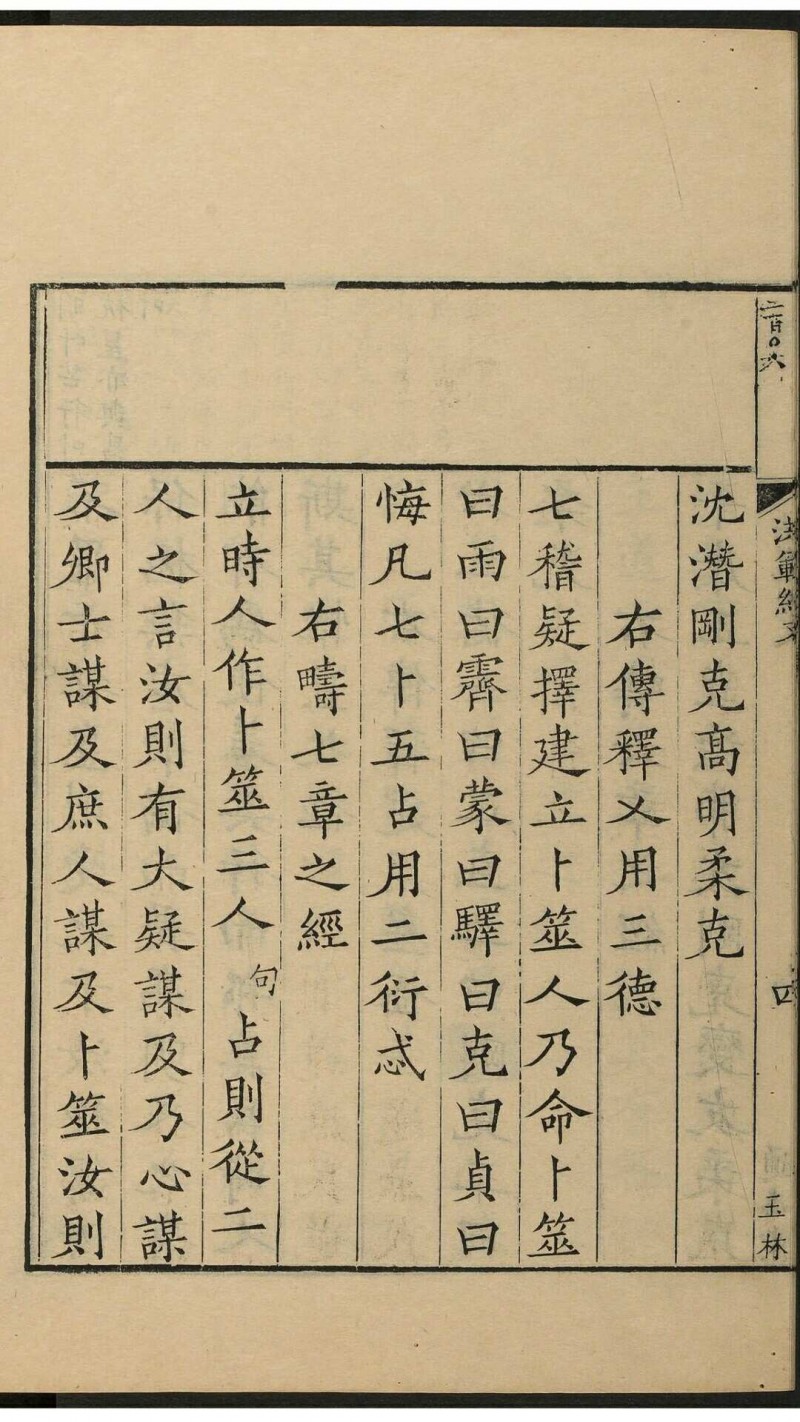 二百〇六
洪範經文
四
玉林
沈潛剛克髙明柔克
右傳釋乂用三德
七稽疑擇建立卜筮人乃命卜筮
曰雨曰霽曰蒙曰驛曰克曰貞曰
悔凡七卜五占用二衍忒
右疇七章之經
立時人作卜筮三人句占則從二
人之言汝則有大疑謀及乃心謀
及卿士謀及庶人謀及卜筮汝則